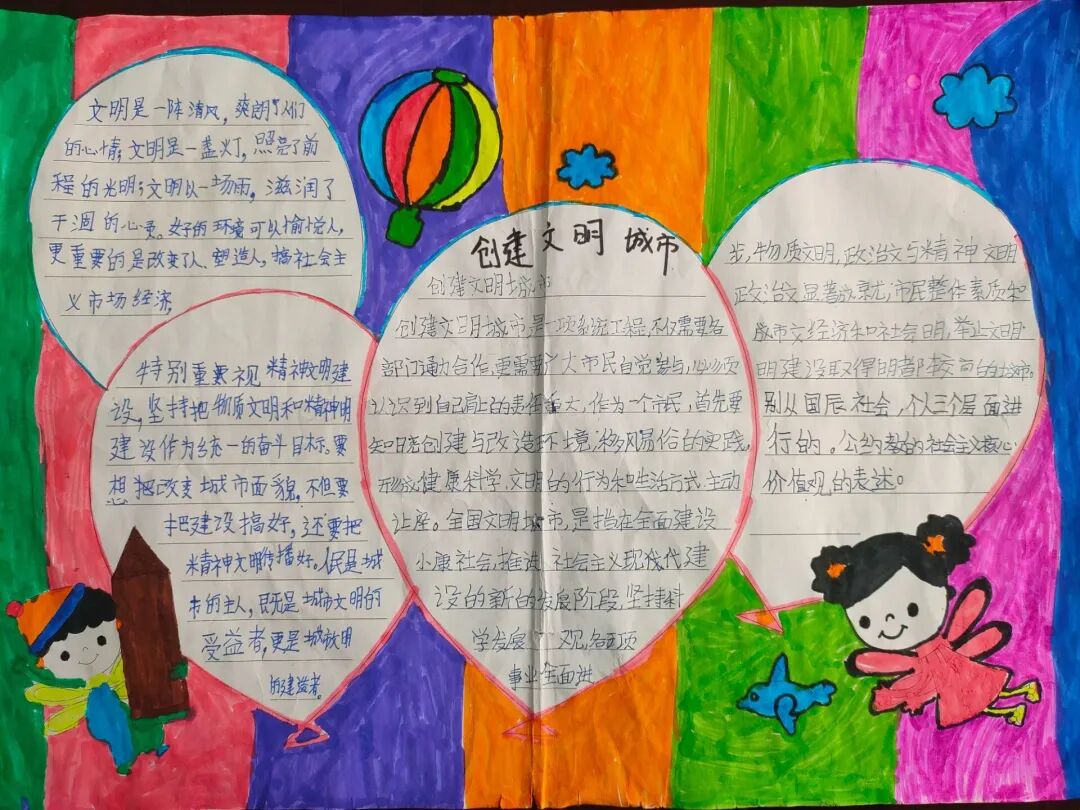 文明是一阵清风，爽朗了人们
的心情；文明是一盏灯，照亮了前
程的光明；文明以一场雨，滋润了
干涸的心灵。好的环境可以愉悦人，
更重要的是改变了人、塑造人，搞社会主
义市场经济，
特别重要视精神文明建
设，坚持把物质文明和精神明
建设作为统一的奋斗目标。要
想把改变城市面貌，不但要
把建设搞好，还要把
精神文明传播好。人民是城
市的主人，既是城市文明的
受益者，更是城放明
的建造者。
创建文明城市
创建文明城市
创建文明城市是一项系统工程，不仅需要各
部门通力合作，更需要广大市民自觉参与，必须
认识到自己肩上的责任重大，作为一个市民，首先要
知晓创建与改造环境，移风易俗的实践，
形成健康科学、文明的行为和生活方式，主动
让座。全国文明城市，是指在全面建设
小康社会，推进社会主义现代代建
设的新的发展阶段，坚持科
学发展 观，各项
事业全面进
步，物质文明，政治文与精神文明
政治文显著成就，市民整体素质和
城市文经济和社会明，举止文明
明建设取得明都较高的城市，
别从国家社会，个人三个层面进
行的。公约数的社会主义核心
价值观的表述。